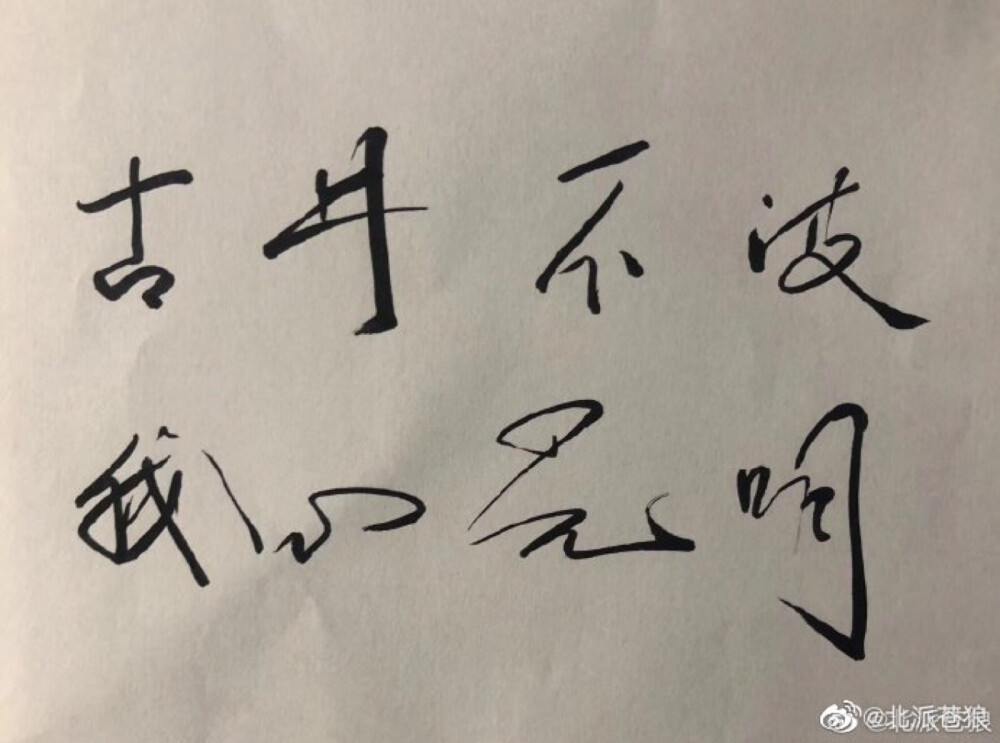 古井不波
我心光明
@北派苍狼